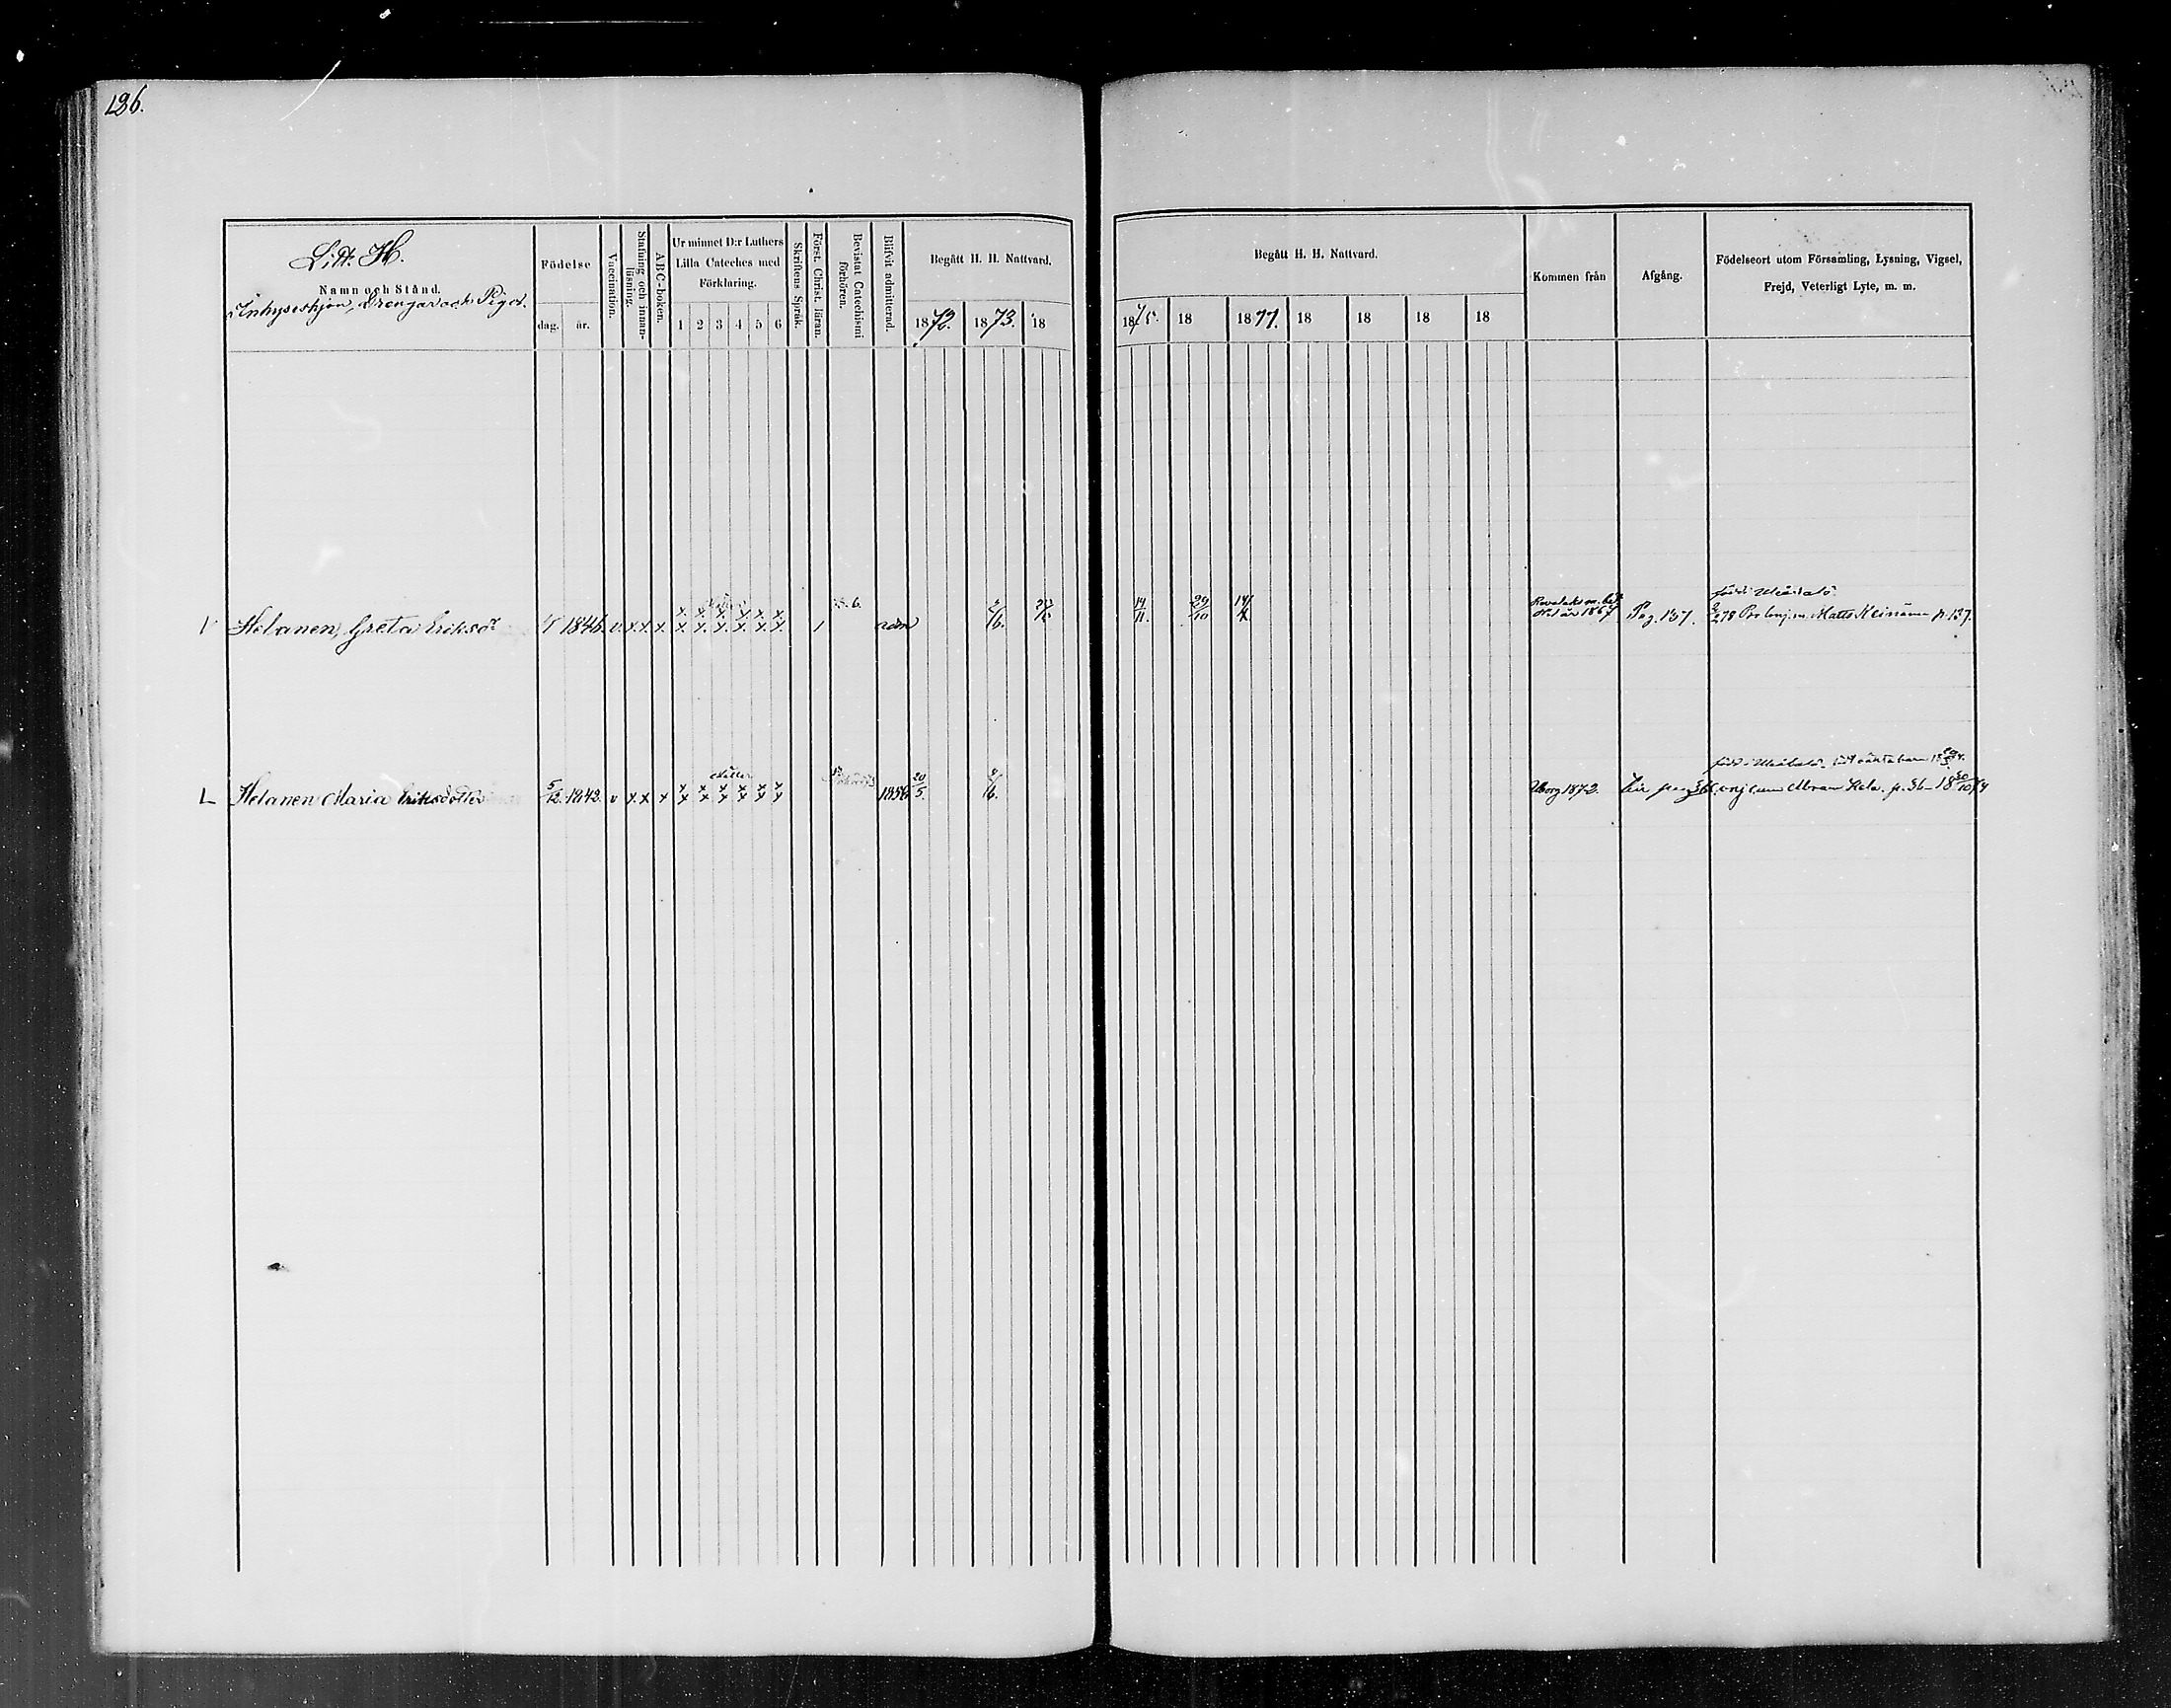 126.
Litt. H.
Namn och Stånd.
Inhyseshjon, Drengar och Pigor.
Födelse
dag. år.
Vaccination.
Stafning och innanläsning.
ABC-boken.
Ur minnet D:r Luthers
Lilla Cateches med
Förklaring.
1 2 3 4 5 6
Skriftens Språk.
Först. Christ. läran.
Bevistat Catechismi förhören.
Blifvit admitterad.
Begått H. H. Nattvard.
1872. 1873. 18
Begått H. H. Nattvard.
1875. 18 1877. 18 18 18 18
Kommen från
Afgång.
Födelseort utom Församling, Lysning, Vigsel,
Frejd, Veterligt Lyte, m. m.
Helanen, Greta Eriksdr 1846. v. x. x. x. x. x. x. x. x. x. 6. adm 2/6. 14/11. 29/10 Pag. 137. 78 m. Matts p. 137.
Helanen Maria Eriksdotter 5/12. 1842. v x. x x x x x x x x 1856 20/5. 2/6. Wborg 1872. Abram Hela. p. 36 18 30/10 74